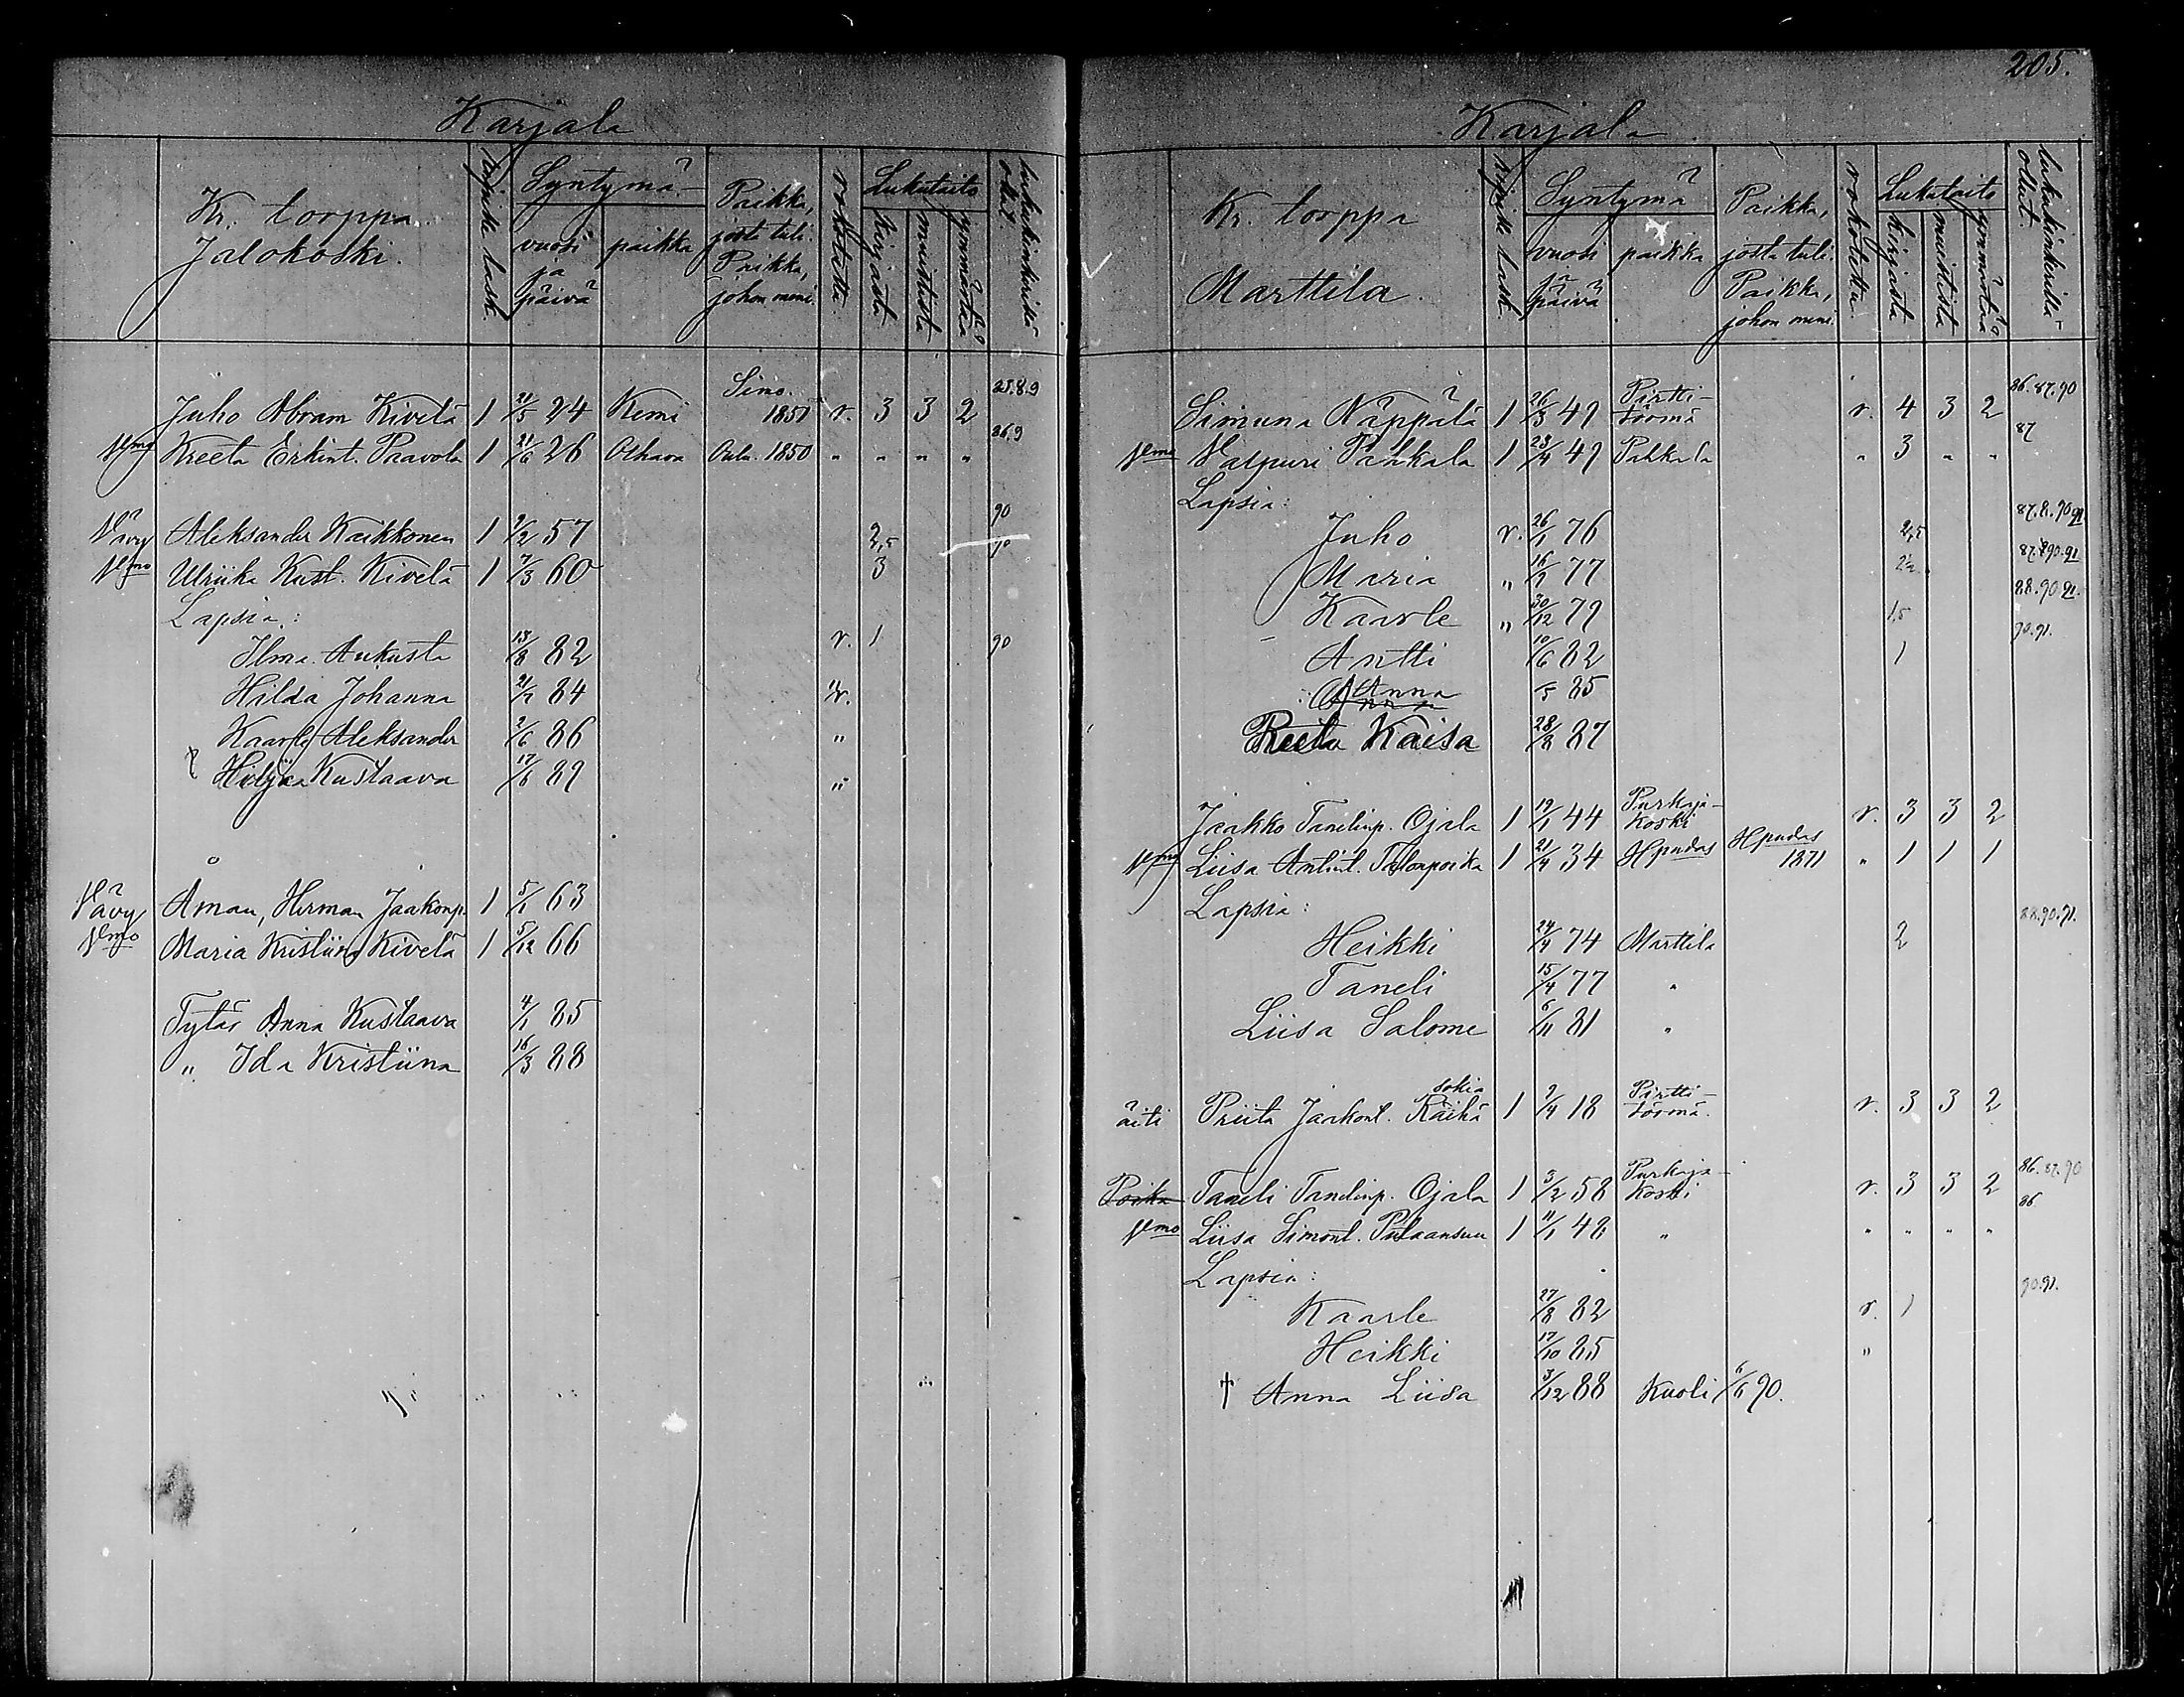 205.
Karjala
Kr. torppa
Jalokoski.
Syntymä-
vuosi ja päivä
paikka
Paikka, josta tuli.
Paikka, johon meni.
rokotettu.
Lukutaito
kirjasta
muistista
ymmärtää
Simo. 25.8.9
Juho Abram Kivelä 1 21/5 24 Kemi 1851 r. 3 3 2
86.9
Vmo Kreeta Erkint. Paavola 1 21/6 26 Olhava Oulu. 1850 " " " "
90
Vävy Aleksander Kaikkonen 1 9/2 57 2,5
Vmo Ulriika Kust. Kivelä 1 7/3 60 3 90
Lapsia:
Ilma Aukusta 13/8 82 r. 1 90
Hilda Johanna 21/7 84 r.
Kaarle Aleksander 2/6 86 "
Hilja Kustaava 17/6 89 "
Vävy Åman, Herman Jaakonp. 1 5/1 63
Vmo Maria Kristiina Kivelä 1 5/12 66
Tytär Anna Kustaava 4/1 85
" Ida Kristiina 16/3 88
Karjala
Kr. torppa
Marttila.
Syntymä
vuosi ja päivä
paikka
Paikka, josta tuli.
Paikka, johon meni.
rokotettu.
Lukutaito
kirjasta
muistista
ymmärtää
lukukinkerillä ollut.
Pirtti- 86.87.90
Simuna Näppälä 1 26/3 49 törmä r. 4 3 2
87
Vmo Valpuri Pahkala 1 23/4 49 Pahkala " 3 " "
Lapsia:
Juho r. 26/1 76 2,5 87.8.90.91
Maria " 16/9 77 2½ 87.8 90.91
Kaarle " 30/12 79 1,5 88.90.91.
Antti 10/6 82 1 90.91.
Anna 5 85
Reeta Kaisa 28/8 87
Purkaja-
Jaakko Tanelinp. Ojala 1 19/1 44 koski r. 3 3 2
Vmo Liisa Antint. Talonpoika 1 21/4 34 Hpudas Hpudas 1871 " 1 1 1
Lapsia:
Heikki 24/4 74 Marttila 2 88.90.91.
Taneli 15/4 77 "
Liisa Salome 6/11 81 "
sokia Pirtti-
äiti Priita Jaakont. Räihä 1 2/4 18 törmä. r. 3 3 2
Purkaja- 86.87.90
Poika Taneli Tanelinp. Ojala 1 3/2 58 koski r. 3 3 2
86
Vmo Liisa Simont. Pulaansuu 1 11/1 48 " " " " "
Lapsia:
Kaarle 27/8 82 r. 1 90.91.
Heikki 17/10 85 "
† Anna Liisa 3/12 88 Kuoli 6/6 90.